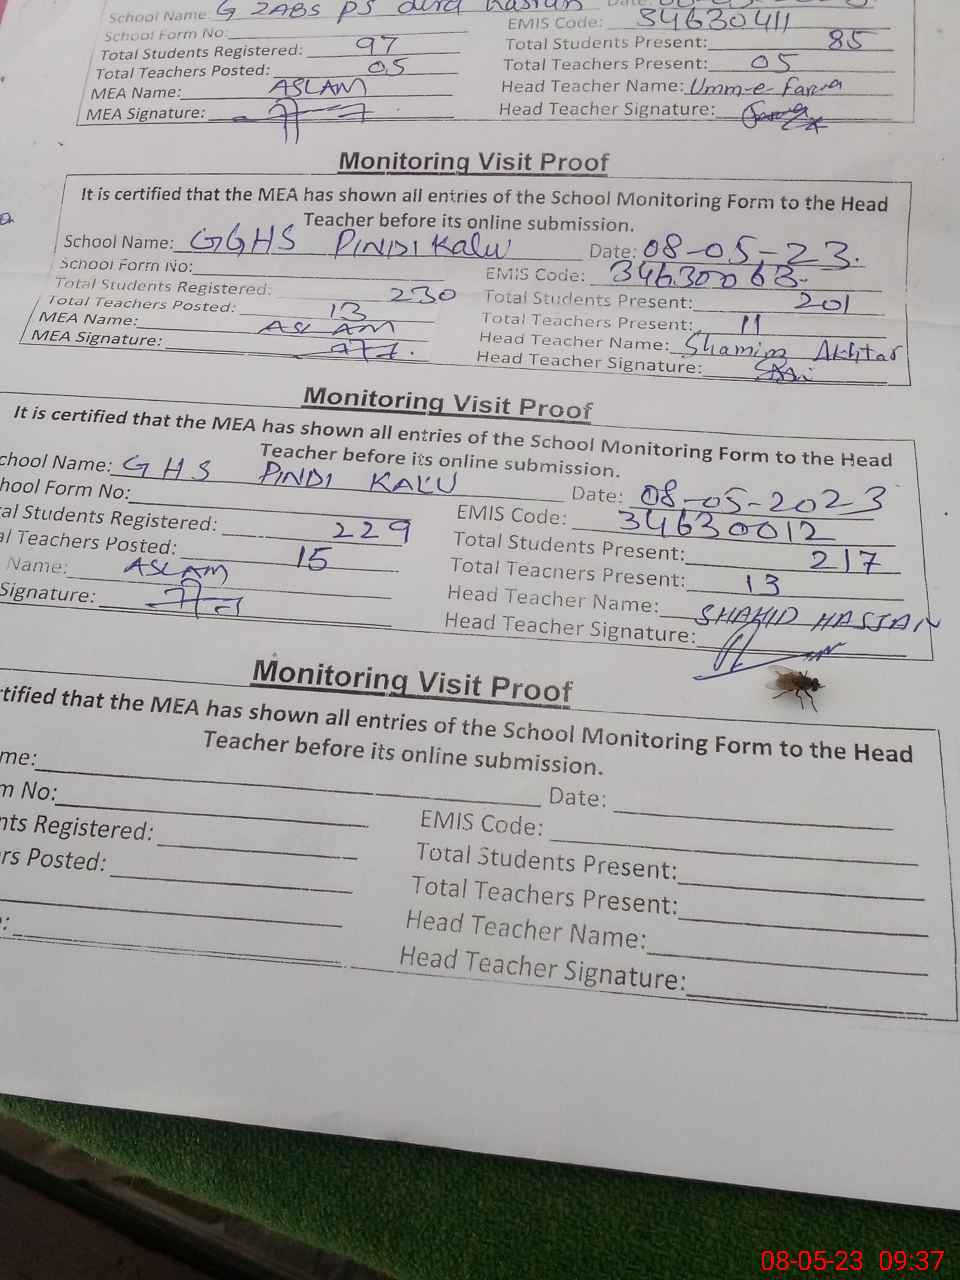 School Name: G ZABS PS dera Date:
School Form No: EMIS Code: 34630411
Total Students Registered: 97 Total Students Present: 85
Total Teachers Posted: 05 Total Teachers Present: 05
MEA Name: ASLAM Head Teacher Name: Umm-e Farwa
MEA Signature: Head Teacher Signature:
Monitoring Visit Proof
It is certified that the MEA has shown all entries of the School Monitoring Form to the Head
Teacher before its online submission.
School Name: GGHS PINDI Kalu Date: 08-05-23.
School Form No: EMIS Code: 34630063.
Total Students Registered: 230 Total Students Present: 201
Total Teachers Posted: 13 Total Teachers Present: 11
MEA Name: ASLAM Head Teacher Name: Shamim Akhtar
MEA Signature: Head Teacher Signature:
Monitoring Visit Proof
It is certified that the MEA has shown all entries of the School Monitoring Form to the Head
Teacher before its online submission.
chool Name: GHS PINDI KALU Date: 08-05-2023
hool Form No: EMIS Code: 34630012
al Students Registered: 229 Total Students Present: 217
al Teachers Posted: 15 Total Teachers Present: 13
Name: ASLAM Head Teacher Name: SHAHID HASSAN
Signature: Head Teacher Signature:
Monitoring Visit Proof
rtified that the MEA has shown all entries of the School Monitoring Form to the Head
Teacher before its online submission.
me: Date:
m No: EMIS Code:
nts Registered: Total Students Present:
rs Posted: Total Teachers Present:
Head Teacher Name:
Head Teacher Signature:
08-05-23 09:37